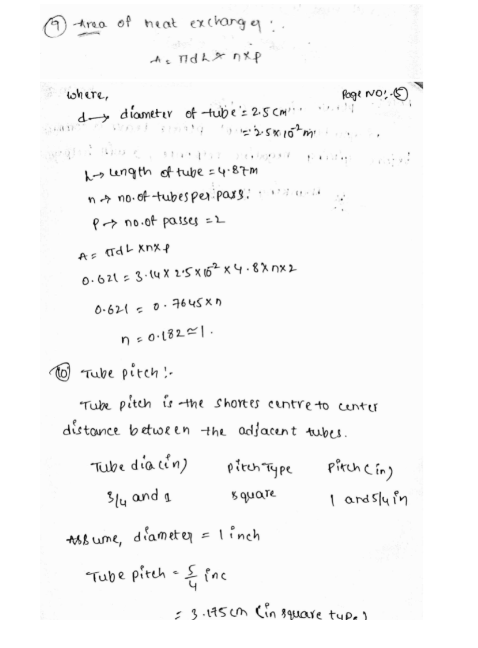 9 Area of heat exchanger :.
A = πdL × n×p
where, Page No:-5
d → diameter of tube = 2.5 cm
= 2.5 × 10⁻² m
L → length of tube = 4.87m
n → no. of tubes per pass.
P → no. of passes = 2
A = πdL × n×p
0.621 = 3.14 × 2.5 × 10² × 4.8 × n×2
0.621 = 0.7645 × n
n = 0.182 ≃ 1.
10 Tube pitch :-
Tube pitch is the shortes centre to center
distance between the adjacent tubes.
Tube dia (in) pitch Type Pitch (in)
3/4 and 1 square 1 and 5/4 in
Assume, diameter = 1 inch
Tube pitch = 5/4 inc
= 3.175 cm (in square type)